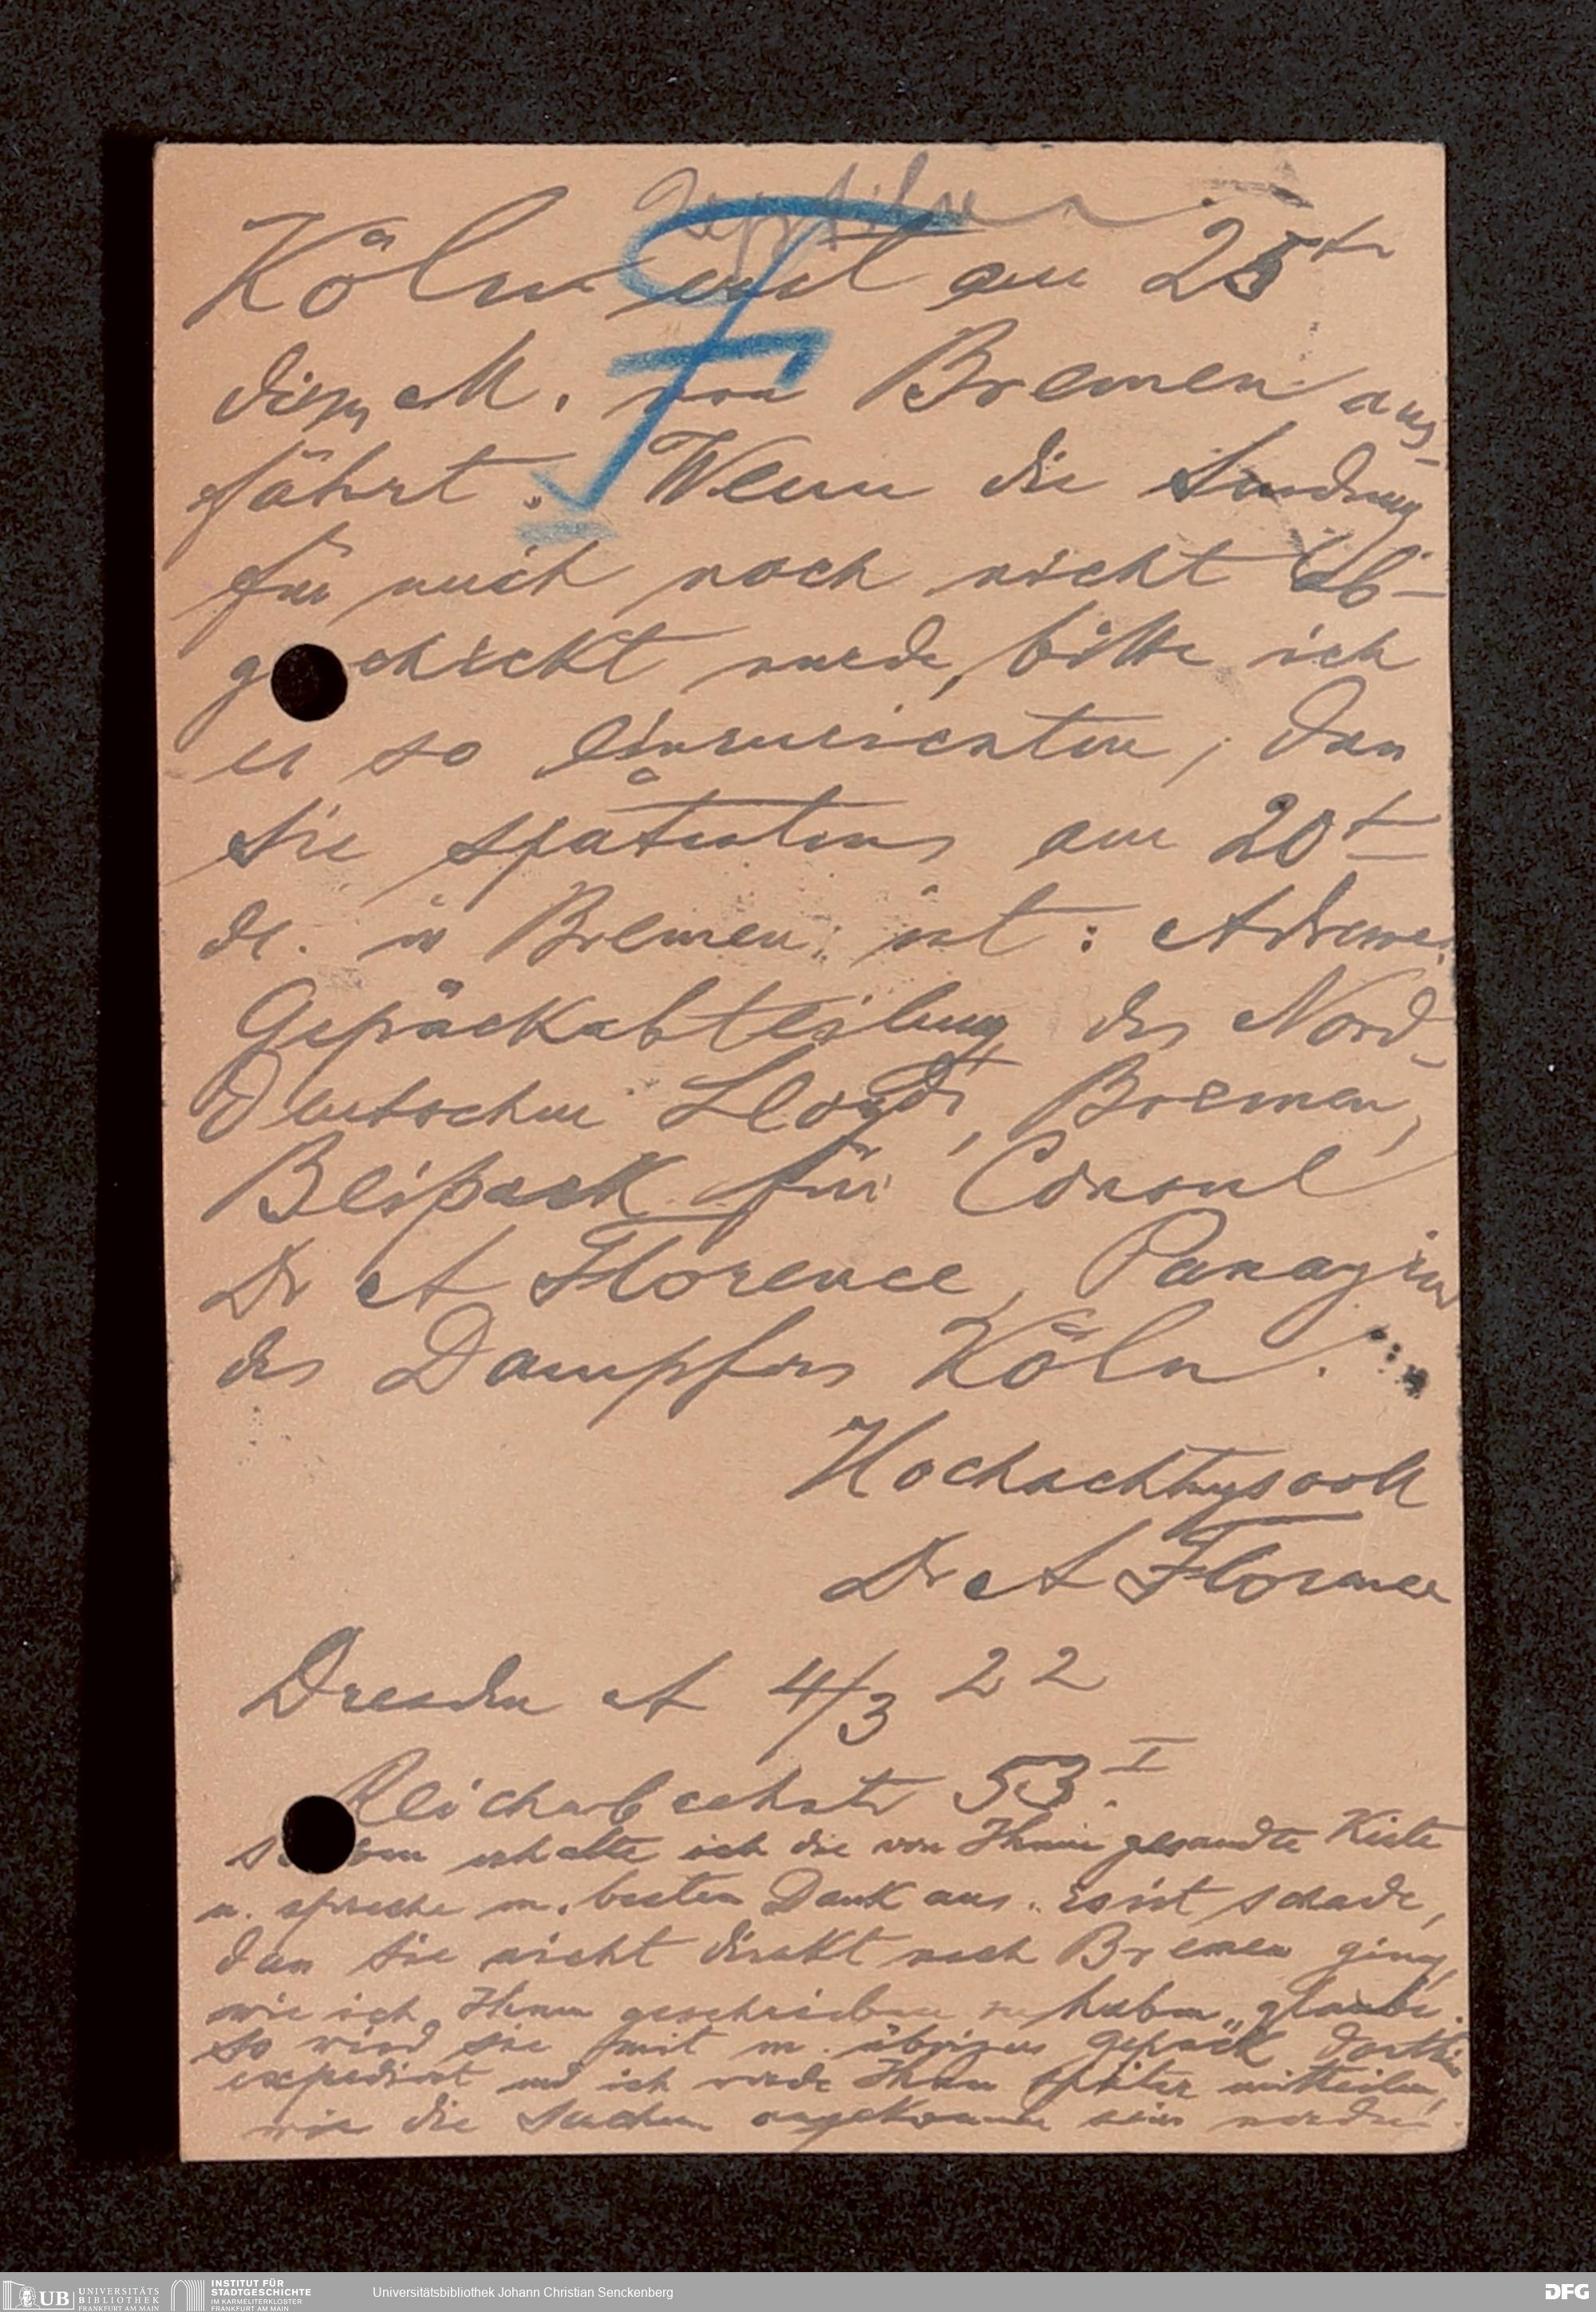 Köln erst am 25t
dieses M. von Bremen aus-
fährt. Wenn die Sendung
für mich noch nicht ab-
geschickt wurde, bitte ich
es so einzurichten, dass
sie spätestens am 20t
ds. in Bremen ist: Adresse:
Gepäckabteilung des Nord-
deutschen Lloyds, Bremen,
Beipack für Consul
Dr A Florence, Passagier
des Dampfers Köln.
Hochachtungsvoll
Dr A Florence
Dresden A 4/3 22
Reichenbachstr 53 I.
Soeben erhalte ich die von Ihnen gesandte Kiste
u. spreche m. besten Dank aus. es ist schade,
dass sie nicht direkt nach Bremen ging,
wie ich Ihnen geschrieben zu haben glaube.
so wird sie mit m. übrigen Gepäck dorthin
expediert und ich werde Ihnen später mitteilen,
wie die Sachen angekommen sein werden.
UB UNIVERSITÄTS
BIBLIOTHEK
FRANKFURT AM MAIN
INSTITUT FÜR
STADTGESCHICHTE
IM KARMELITERKLOSTER
FRANKFURT AM MAIN
Universitätsbibliothek Johann Christian Senckenberg
DFG